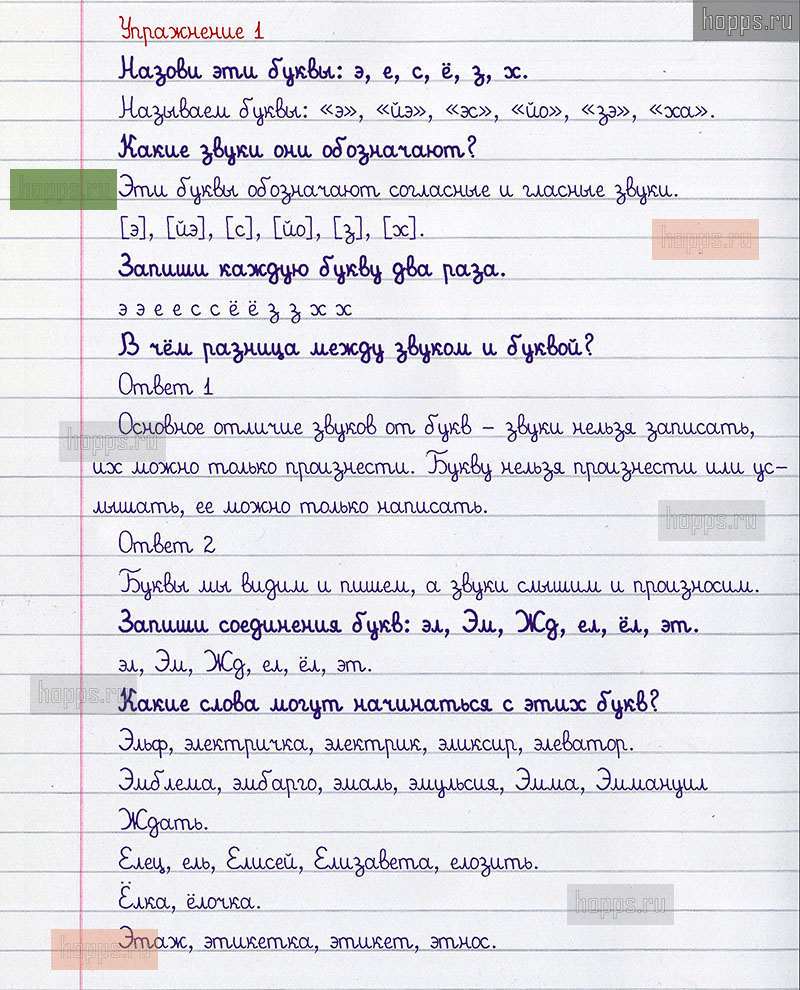 hopps.ru
Упражнение 1
Назови эти буквы: э, е, с, ё, з, х.
Называем буквы: «э», «йэ», «эс», «йо», «зэ», «ха».
Какие звуки они обозначают?
hopps.ru
Эти буквы обозначают согласные и гласные звуки.
[э], [йэ], [с], [йо], [з], [х].
hopps.ru
Запиши каждую букву два раза.
э э е е с с ё ё з з х х
В чём разница между звуком и буквой?
Ответ 1
Основное отличие звуков от букв – звуки нельзя записать,
hopps.ru
их можно только произнести. Букву нельзя произнести или ус-
лышать, ее можно только написать.
hopps.ru
Ответ 2
Буквы мы видим и пишем, а звуки слышим и произносим.
Запиши соединения букв: эл, Эм, Жд, ел, ёл, эт.
эл, Эм, Жд, ел, ёл, эт.
hopps.ru
Какие слова могут начинаться с этих букв?
Эльф, электричка, электрик, эликсир, элеватор.
Эмблема, эмбарго, эмаль, эмульсия, Эмма, Эммануил
Ждать.
Елец, ель, Елисей, Елизавета, елозить.
Ёлка, ёлочка.
hopps.ru
Этаж, этикетка, этикет, этнос.
hopps.ru